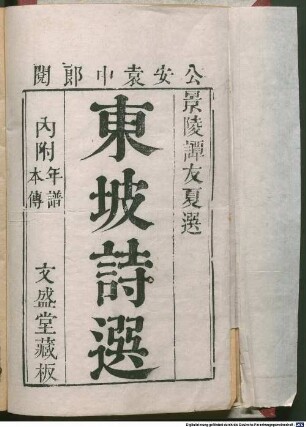 公安袁中郎閱
景陵譚友夏選
東坡詩選
內附年譜本傳
文盛堂藏板